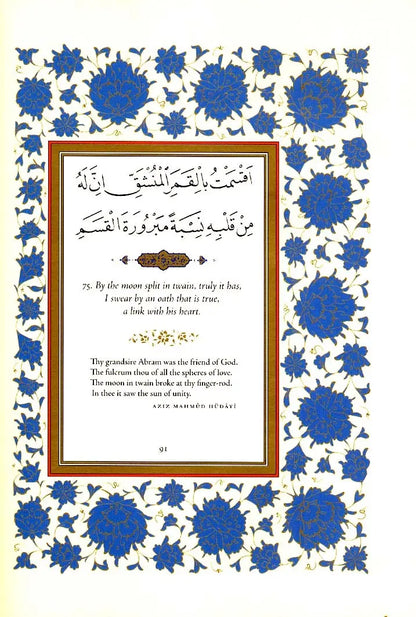 اَقْسَمْتُ بِالْقَمَرِ الْمُنْشَقِّ اِنَّ لَهُ
مِنْ قَلْبِهِ نِسْبَةً مَبْرُورَةَ الْقَسَمِ
75. By the moon split in twain, truly it has,
I swear by an oath that is true,
a link with his heart.
Thy grandsire Abram was the friend of God.
The fulcrum thou of all the spheres of love.
The moon in twain broke at thy finger-rod.
In thee it saw the sun of unity.
AZIZ MAHMŪD HÜDĀYĪ
91